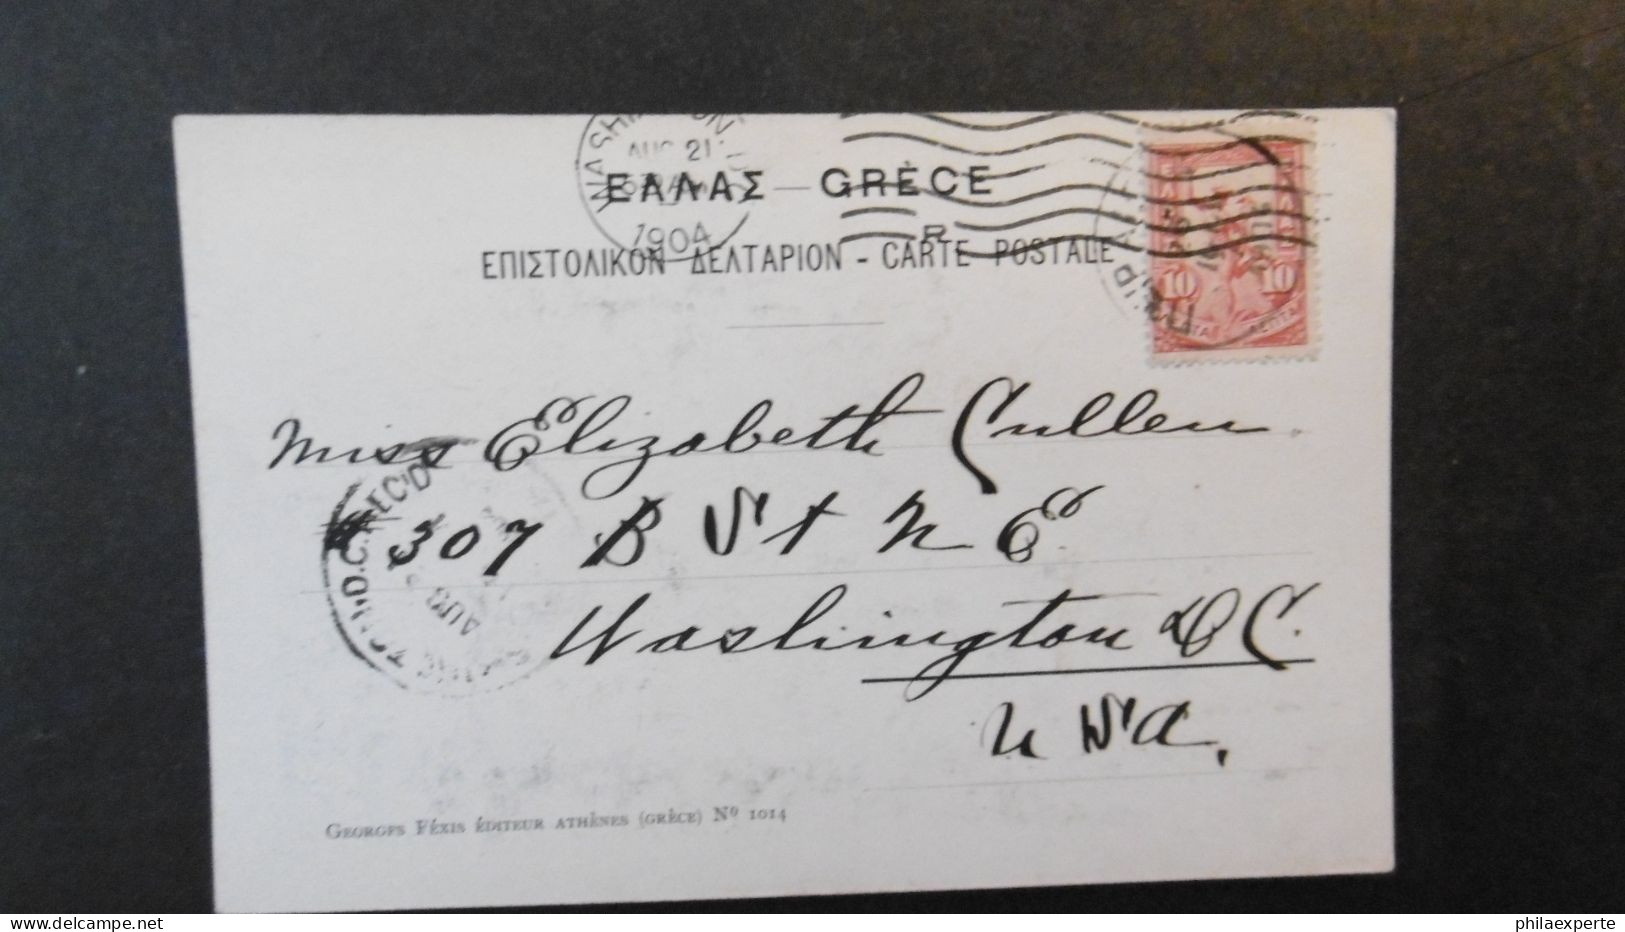 WASHINGTON
AUG 21
1904
ΕΛΛΑΣ — GRÈCE
R
ΕΠΙΣΤΟΛΙΚΟΝ ΔΕΛΤΑΡΙΟΝ - CARTE POSTALE
10 10
ΛΕΠΤΑ
Miss Elizabeth Cullen
307 B St N E
Washington D C.
U S A.
D.C. REC'D
AUG
GEORGES FÉXIS ÉDITEUR ATHÈNES (GRÈCE) Nº 1014
delcampe.net
philaexperte